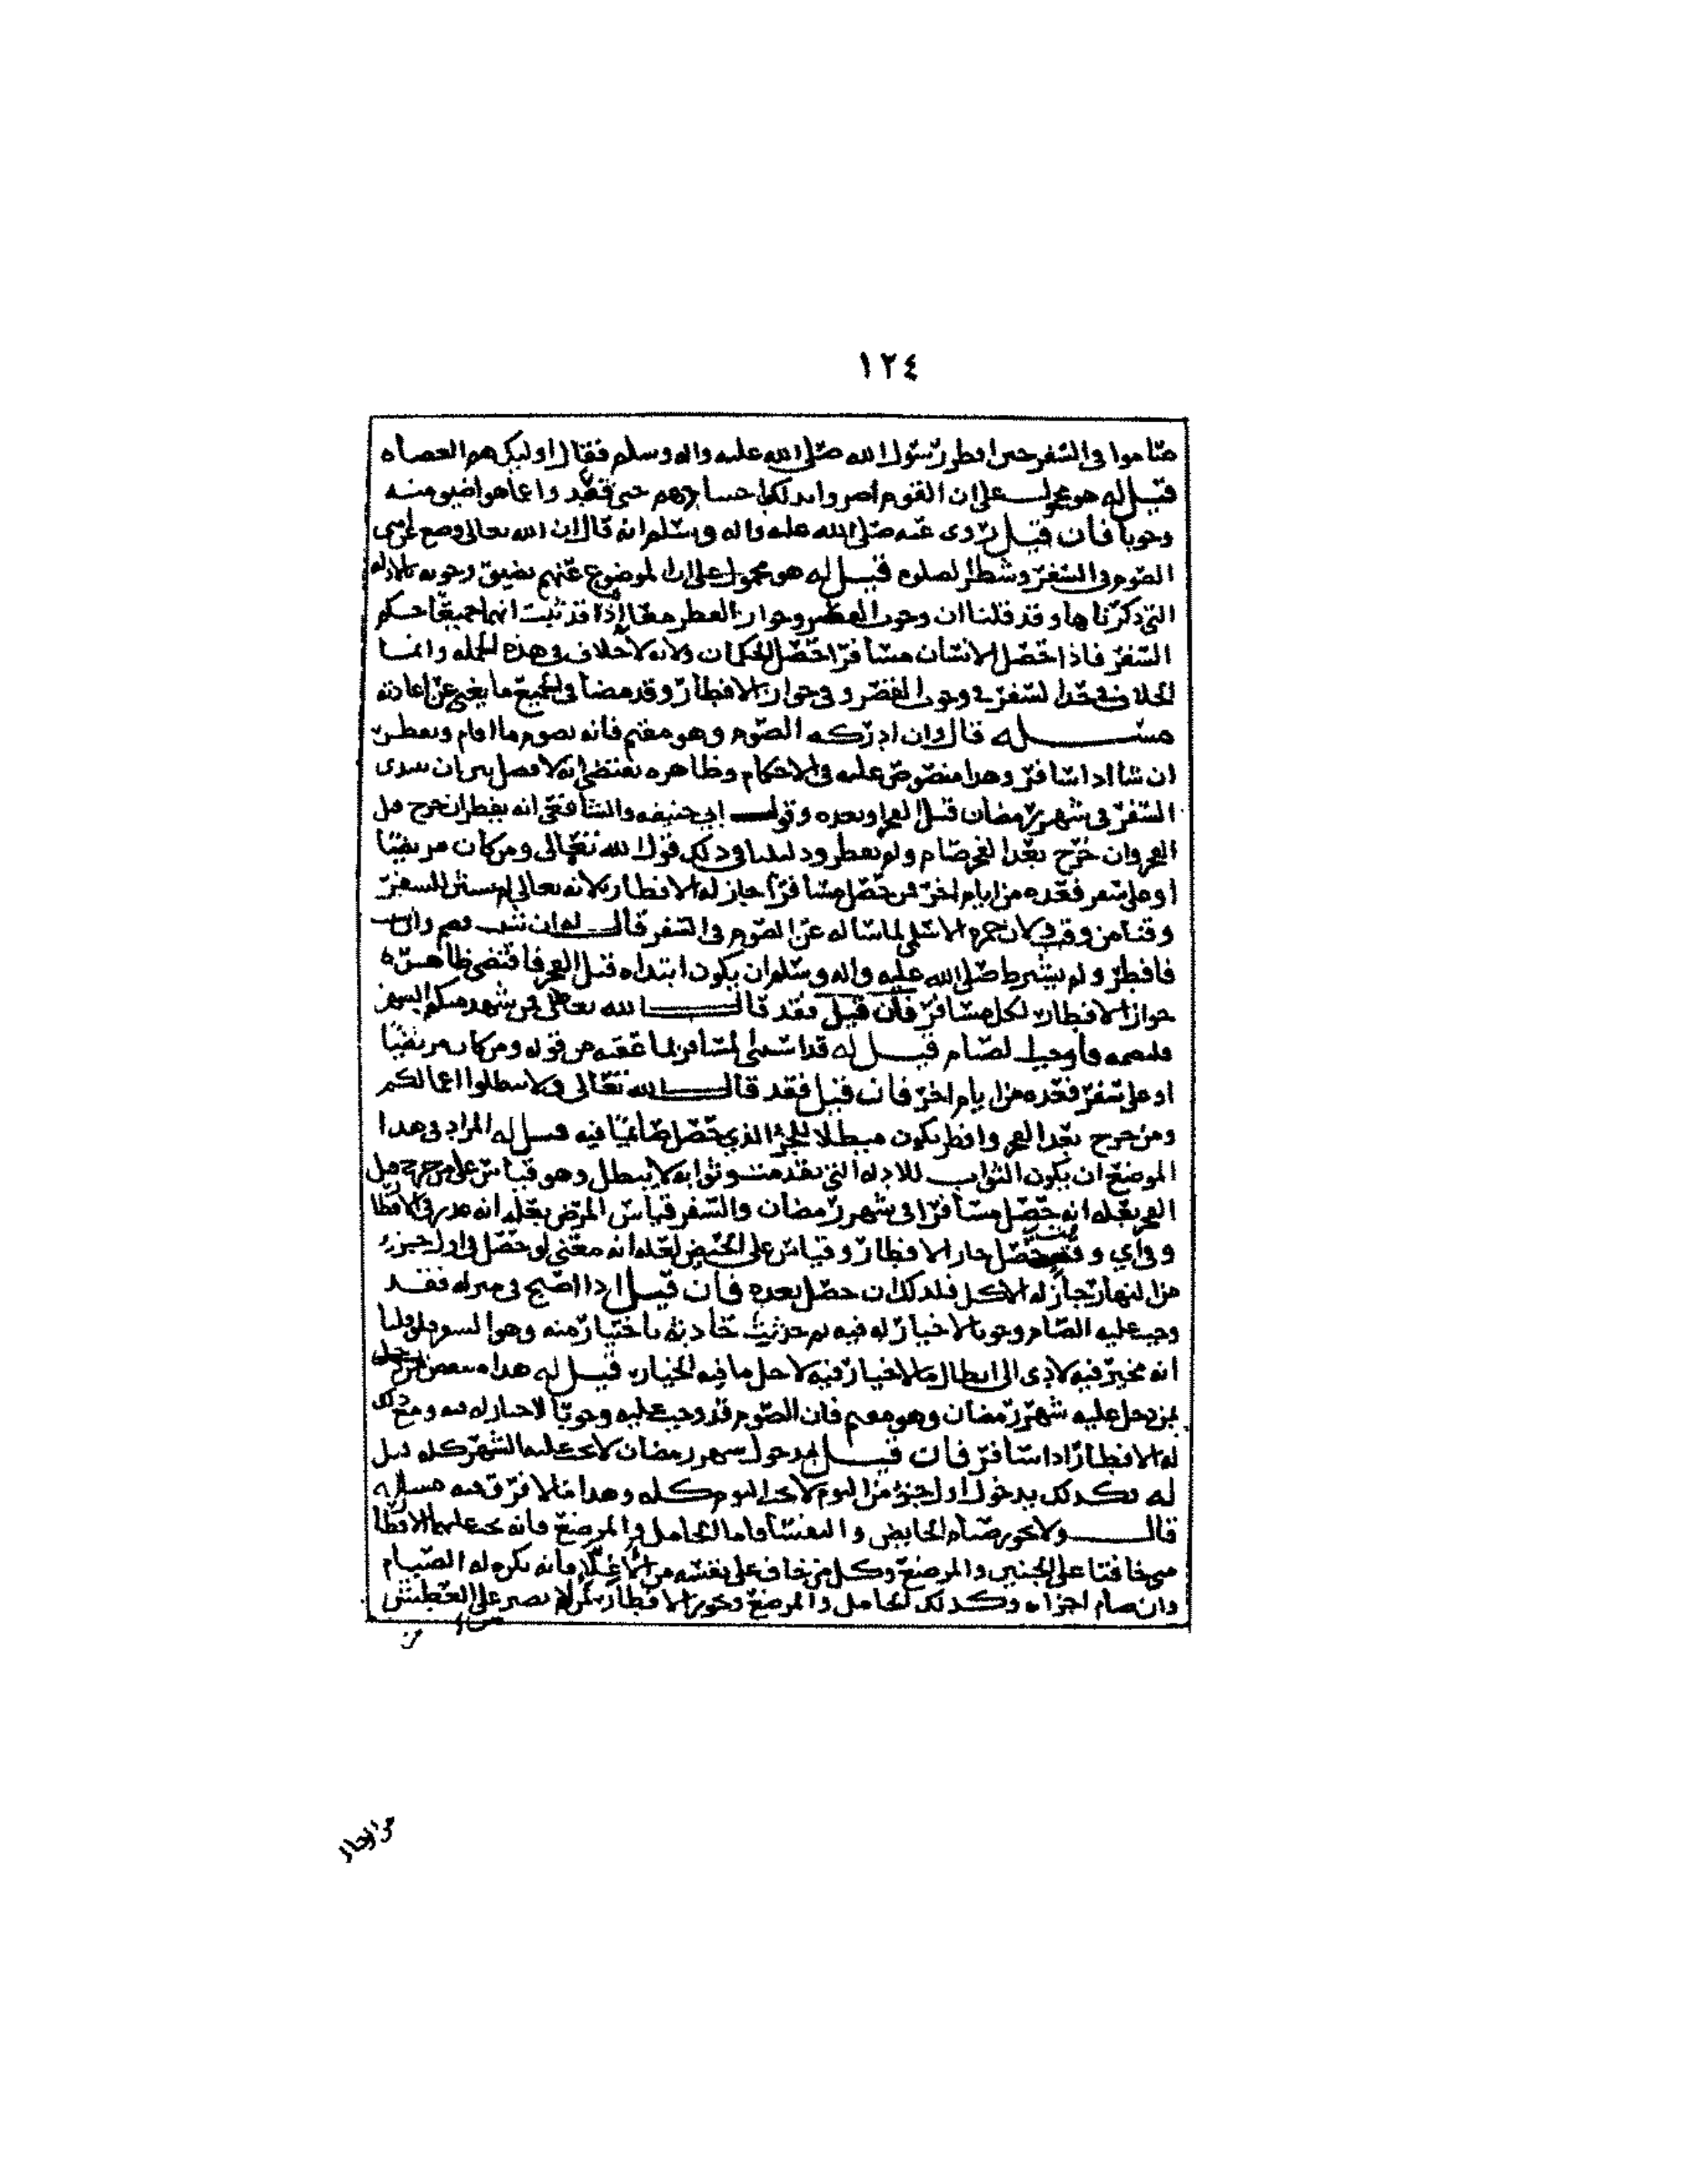 ١٢٤
صاموا في السفر حين افطر رسول الله صلى الله عليه واله وسلم فقال اوليك هم العصاه
قيل له هو محمول على ان القوم وانما هو
وجوبا فان قيل روى عنه صلى الله عليه واله وسلم انه قال ان الله تعالى وضع عن امتى
الصوم في السفر وشطر الصلوه قيل له هو محمول على ان الموضوع عنهم تضيق وجوبه بالادله
التي ذكرناها وقد قلنا ان وجوب القصر وجواز الفطر معا اذا قد ثبت انهما جميعا حكم
السفر فاذا حصل الانسان مسافرا حصل الحكمان ولانه لا خلاف في هذه الجمله وانما
الخلاف في حد السفر في وجوب القصر وفي جواز الافطار وقد مضا في الجميع ما يغني عن اعادته
مسئله قال وان ادركه الصوم وهو مقيم فانه يصوم ما اقام ويفطر
ان شا اذا سافر وهذا منصوص عليه في الاحكام وظاهره يقتضي انه لا فصل بين ان يبتدى
السفر في شهر رمضان قبل الفجر او بعده وقول ابي حنيفه والشافعي انه يفطر ان خرج قبل
الفجر وان خرج بعد الفجر صام ولم يفطر ودليلنا في ذلك قول الله تعالى ومن كان مريضا
او على سفر فعده من ايام اخر فمن حصل مسافرا جاز له الافطار لانه تعالى لم يستثن للسفر
وقتا من وقت ولان حمزه الاسلمي لما ساله عن الصوم في السفر قال له ان شئت فصم وان شئت
فافطر ولم يشرط صلى الله عليه واله وسلم ان يكون ابتداه قبل الفجر فاقتضى ظاهره
جواز الافطار لكل مسافر فان قيل فقد قال الله تعالى فمن شهد منكم الشهر
فليصمه فاوجب الصيام قيل له قد استثنى المسافر بما عقبه من قوله ومن كان مريضا
او على سفر فعده من ايام اخر فان قيل فقد قال الله تعالى ولا تبطلوا اعمالكم
ومن خرج بعد الفجر وافطر يكون مبطلا للجزؤ الذي حصل صائما فيه قيل له المراد في هذا
الموضع ان يكون الثواب للادله التي تقدمت وثوابه لا يبطل وهو قياس على من خرج قبل
الفجر بعله انه حصل مسافرا في شهر رمضان والسفر قياس المرض بعله انه عذر في الافطا
وفي اي وقت حصل جاز الافطار وقياس على الحيض لعله انه معنى لو حصل في اول جزء
من النهار جاز له الاكل فلذلك ان حصل بعده فان قيل اذا اصبح في منزله فقد
وجب عليه الصيام وجوبا لا خيار له فيه ثم حادثه باختيار منه وهو السفر فلو قلنا
انه مخير فيه لادى الى ابطال ما لا خيار فيه لاجل ما فيه الخيار قيل له هذا منتقض
بمن دخل عليه شهر رمضان وهو مقيم فان الصوم قد وجب عليه وجوبا لا خيار له فيه ومع ذلك
له الافطار اذا سافر فان قيل فبدخول شهر رمضان لا يجب عليه الشهر كله قيل
له فكذلك بدخول اول جزؤ من اليوم لا يجب اليوم كله وهذا مما لا فرق فيه مسئله
قال ولا يجوز صيام الحايض والنفسا فاما الحامل والمرضع فانه يجب عليهما الافطا
متى خافتا على الجنين والمرضع وكل من خاف على نفسه من فانه يكره له الصيام
وان صام اجزاه وكذلك الحامل والمرضع ويجوز الافطار لمن لا يصبر على العطش